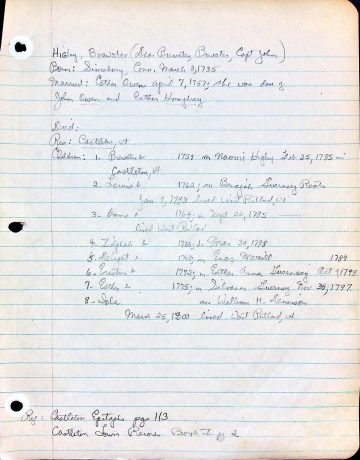 Higby, Brewster (Dea. Brewster, Capt John)
Born: Simsbury, Conn. March 3, 1735
Married: Esther Owen April 7, 1757; she was dau of
John Owen and Esther Humphrey
Died:
Res: Castleton, Vt
Children: 1. Brewster b 1759 m Naomi Higby Feb 25, 1785
Castleton, Vt
2. b 1762; m Benajah Guernsey
Jan 9, 1783 lived West Rutland, Vt
3. b 1764; m Sept 22, 1785
lived West Rutland
4. b 1766; d. Mar 30, 1798
5. b m Enos Merrill 1789
6. Erastus b 1772; m Esther Anna Guernsey Oct 9 1793
7. Esther b 1775; m Silvanus Guernsey Nov 30, 1797
8. m William H. Dennison
March 25, 1800 lived West Rutland, Vt
Ref: Castleton Epitaphs pgs 113
Castleton Town Records Book I pg 2